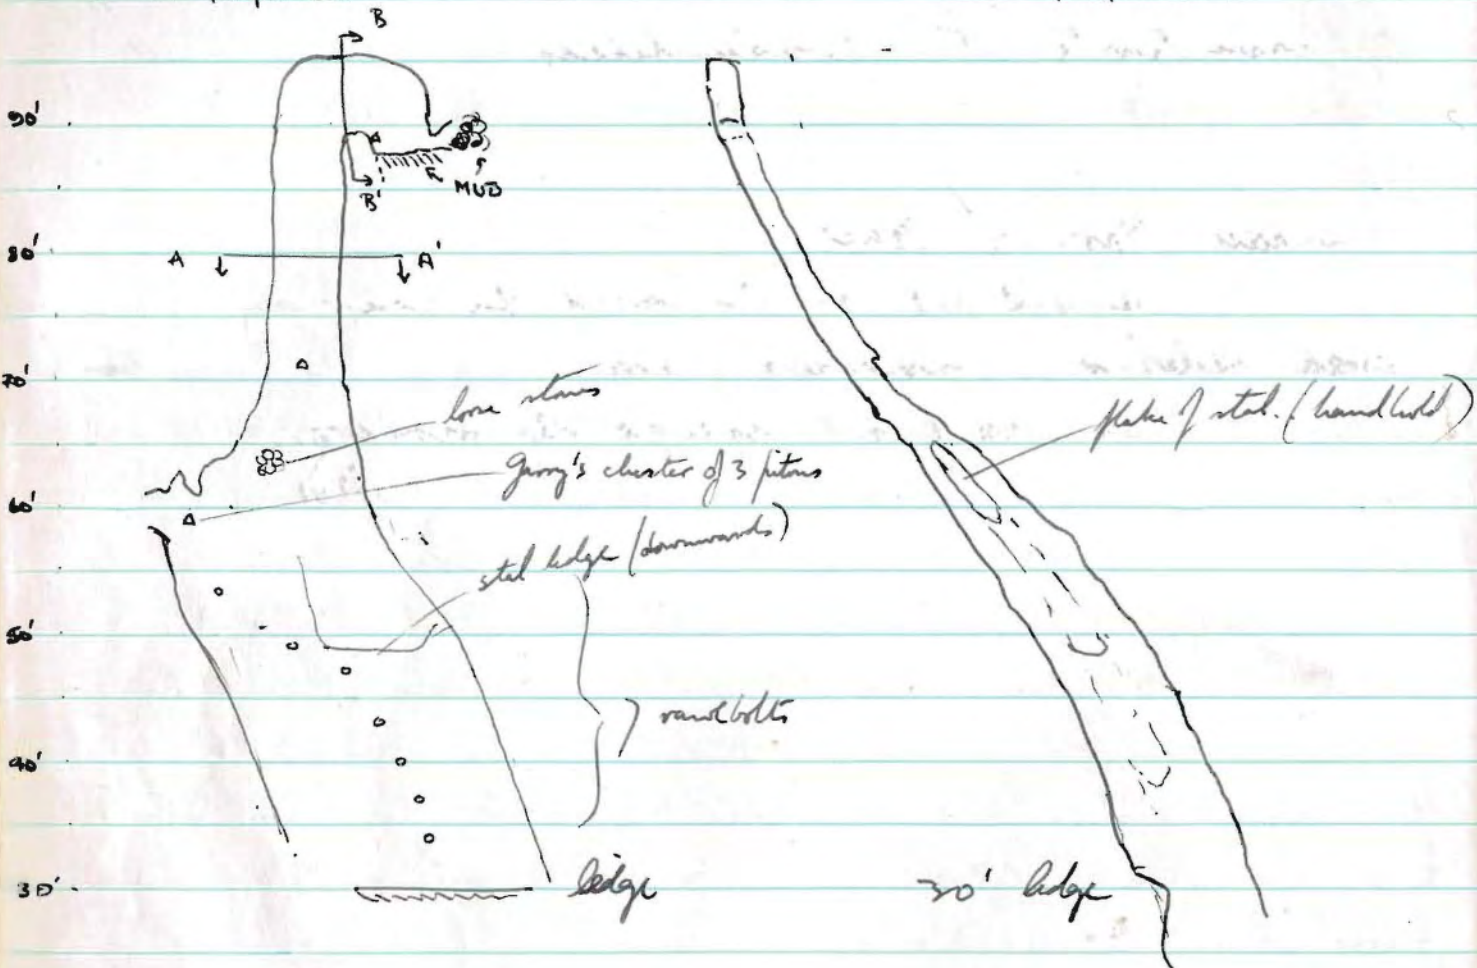 B
90'
MUD
B'
80'
A
A'
70'
loose stones
flake of stal. (handhold)
Gerry's cluster of 3 pitons
60'
stal ledge (downwards)
50'
rawlbolts
40'
30'
ledge
30' ledge